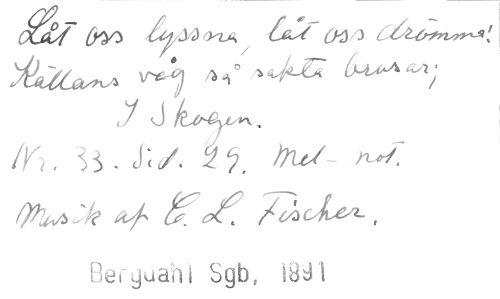 Låt oss lyssna, låt oss drömma!
Källans våg så sakta brusar;
I Skogen.
Nr. 33. Sid. 29. Mel-not.
Musik af C. L. Fischer.
Bergdahl Sgb, 1891